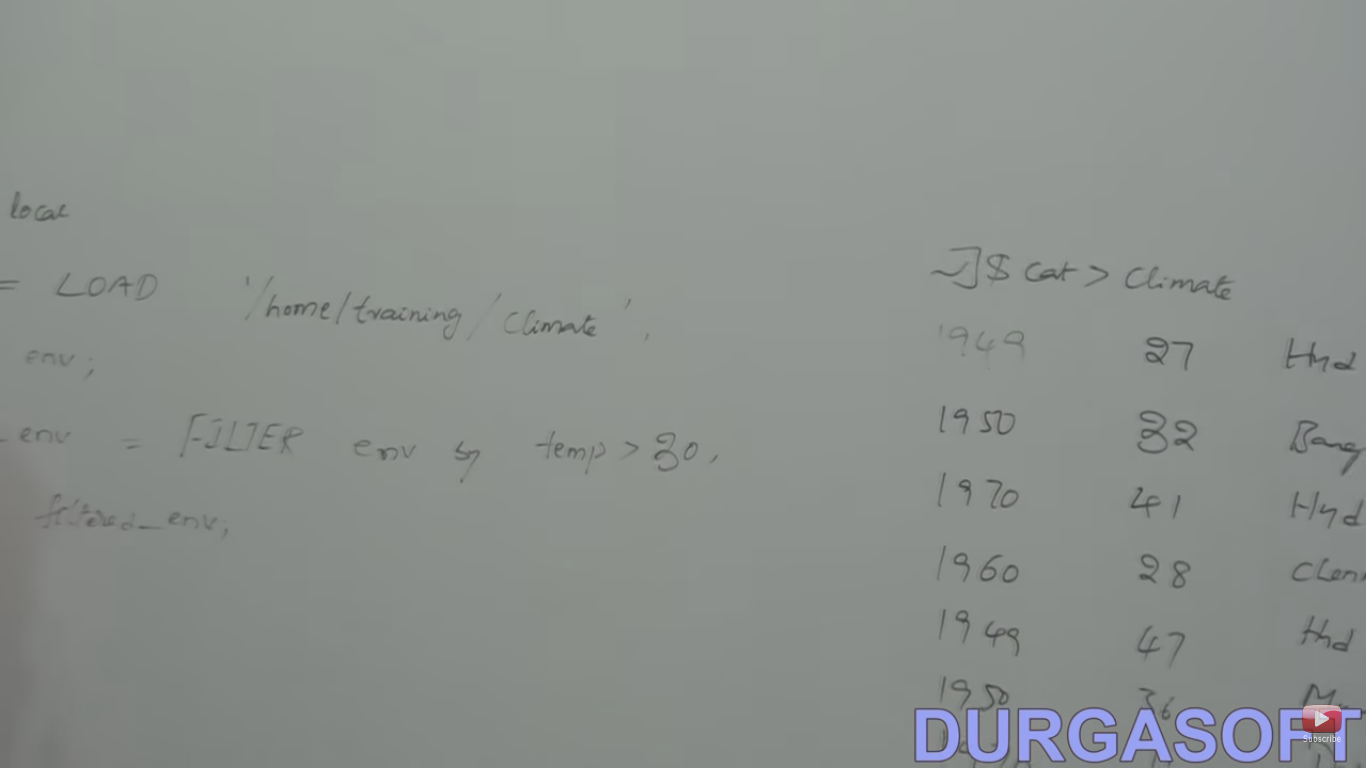 local
= LOAD '/home/training/climate',
env;
_env = FILTER env by temp > 30,
filtered_env;
~]$ Cat > Climate
1949 27 Hyd
1950 32 Bang
1970 41 Hyd
1960 28 Chenn
1949 47 Hyd
1950 36 M
DURGASOFT
Subscribe